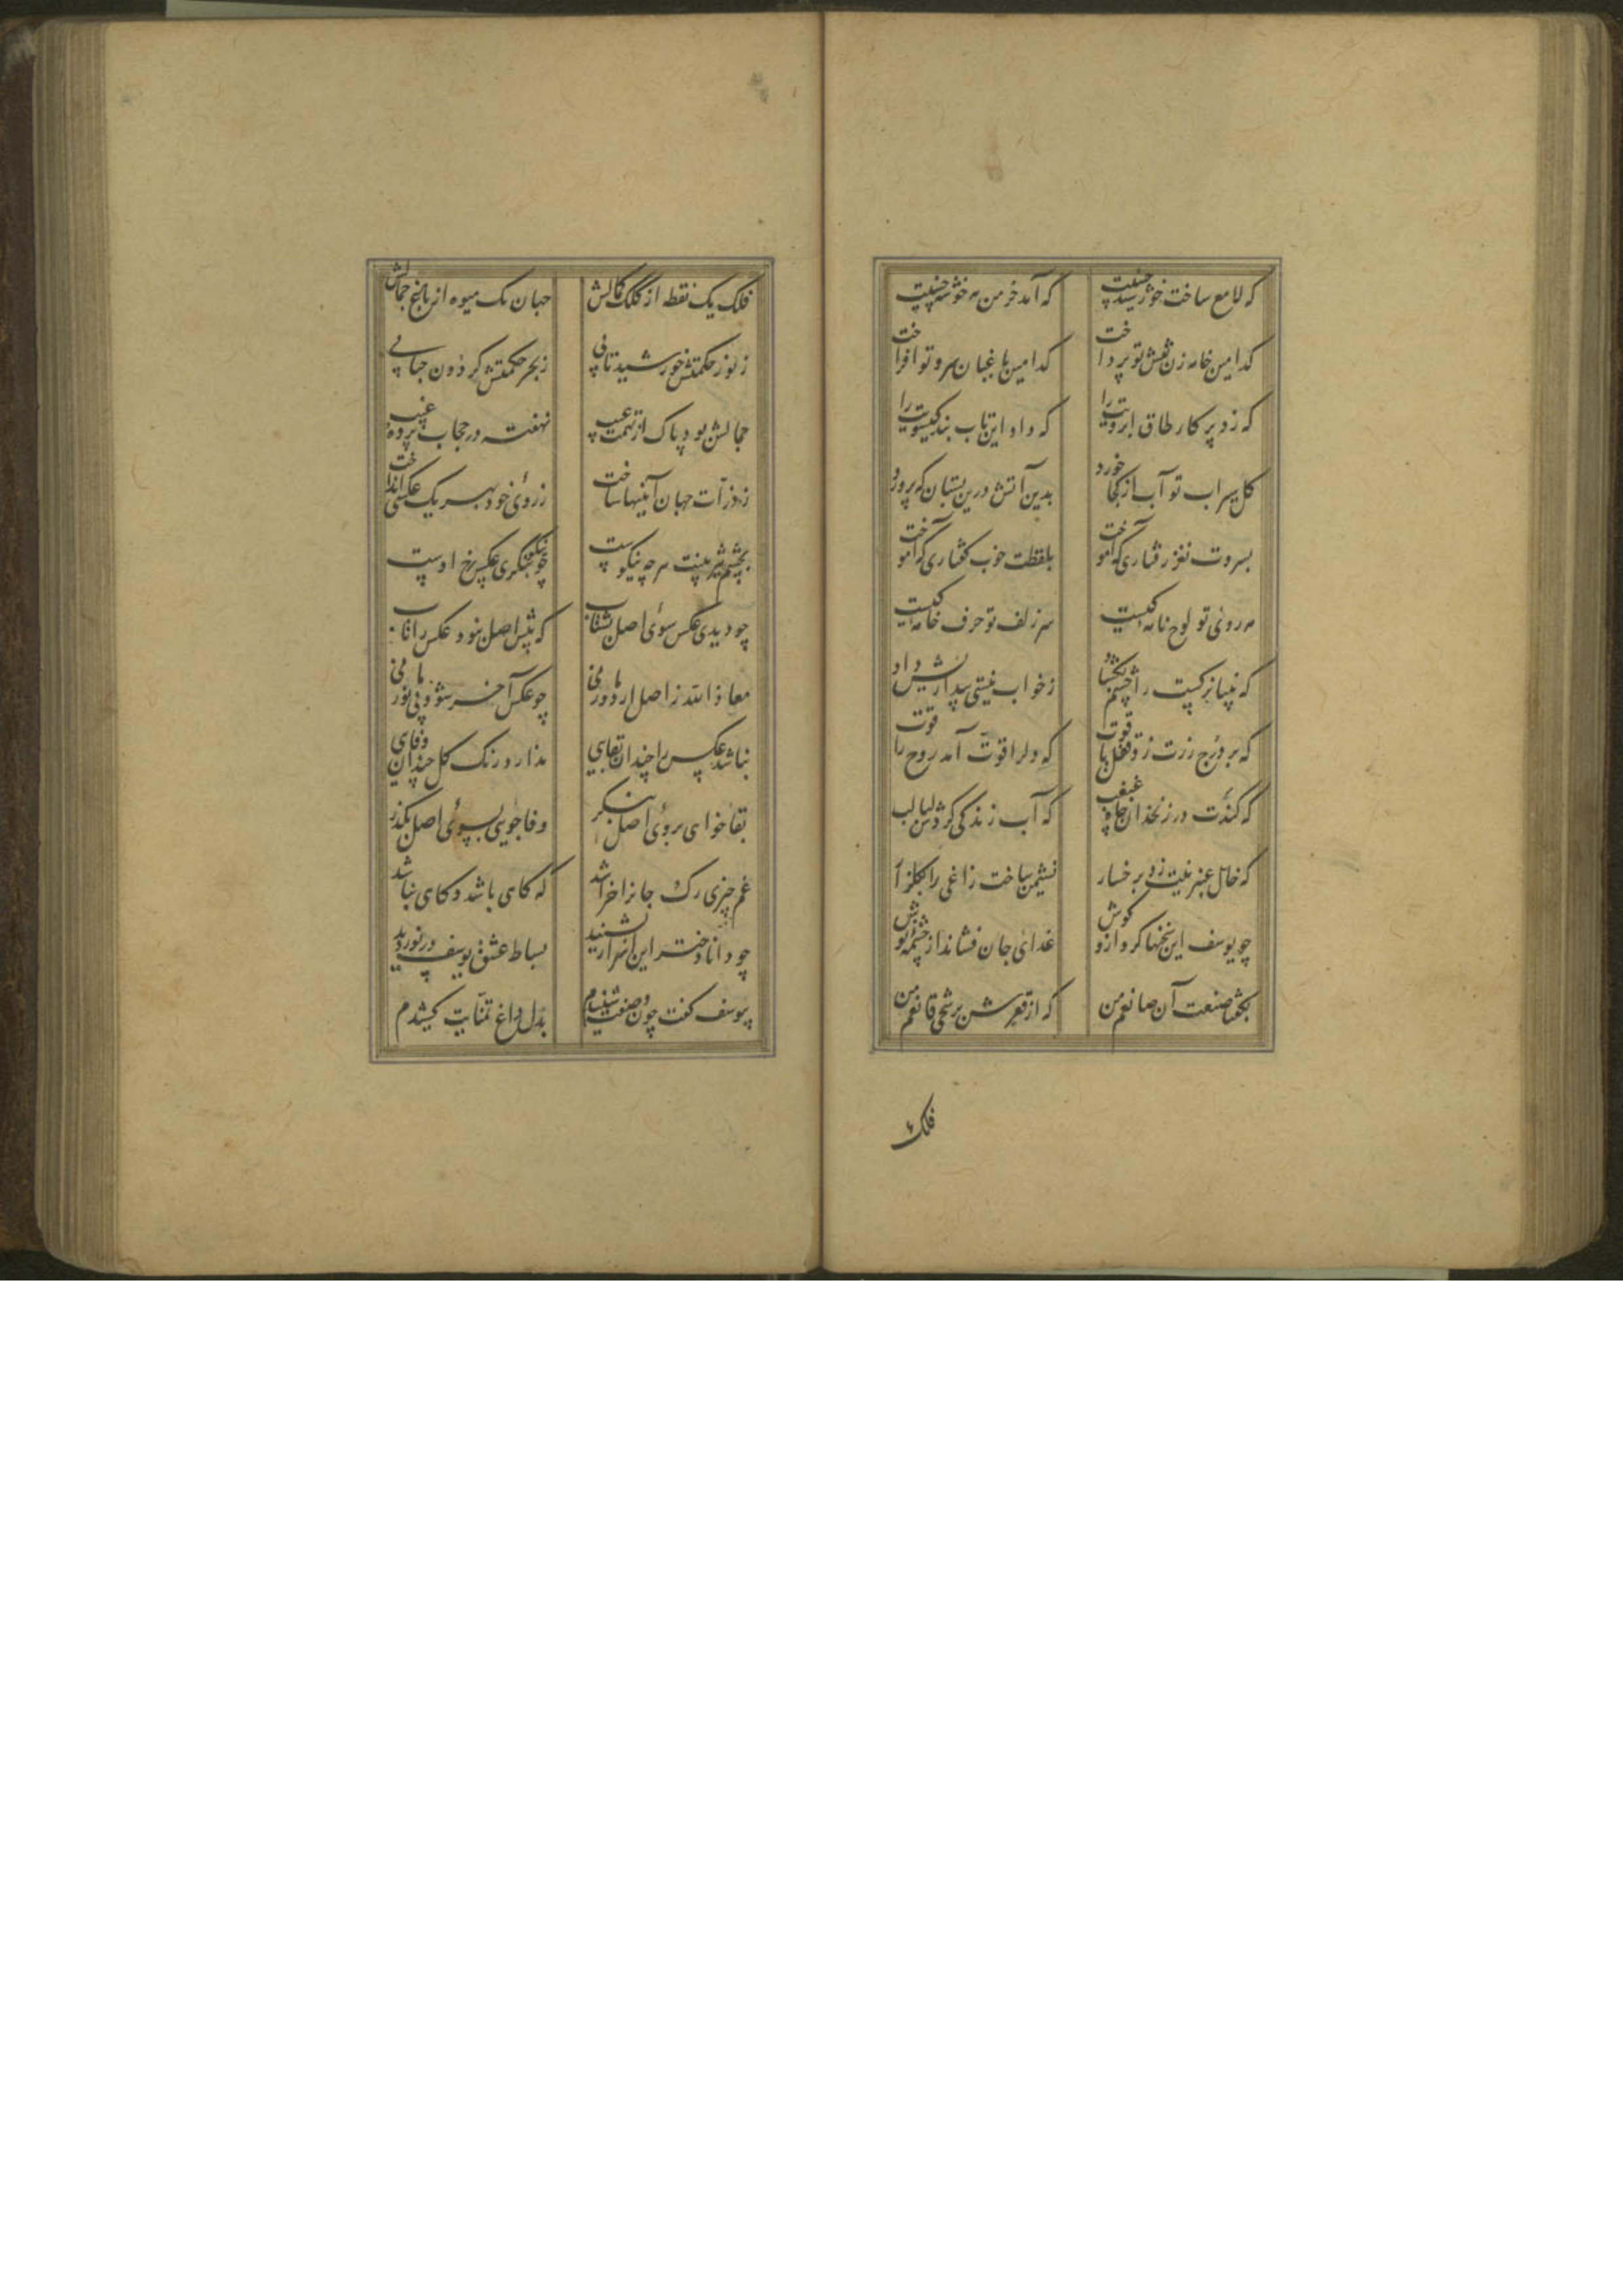 که لامع ساخت خورشید جبینت که آمد خرمن مه خوشه چینت
کدامین خامه زن نقش تو پرداخت کدامین باغبان سرو تو افراخت
که زد پرکار طاق ابرویت را که داد این تاب بند گیسویت را
گل سیراب تو آب از کجا خورد بدین آتش درین بستان که پرورد
بسروت نغز رفتاری که آموخت بلفظت خوب گفتاری که آموخت
مه روئی تو لوح نامه کیست سر زلف تو حرف خامه کیست
که بینا نرگست را چشم بگشاد ز خواب نیستی بیداریش داد
که بر درج زرت زد قفل یاقوت که دلرا قوت آمد روح را قوت
که کندت در زنخدان چاه غبغب که آب زندگی کردش لبالب
که خال عنبرینت زد بر خسار نشیمن ساخت زاغی را بگلزار
چو یوسف این سخنها کرد ازو گوش غدای جان فشاند از چشمه نوش
بگفتا صنعت آن صانعم من که از قعرش برشحی قانعم من
فلک
فلک یک نقطه از کلک کمالش جهان یک میوه از باغ جمالش
ز نور حکمتش خورشید تابی ز بحر حکمتش گردون حبابی
جمالش بود پاک از تهمت عیب نهفته در حجاب پرده غیب
ز ذرآت جهان آئینها ساخت ز روئی خود بهر یک عکسی انداخت
بچشم تیزبینت هر چه نیکوست چو نیکو بنگری عکس رخ اوست
چو دیدی عکس سوئی اصل بشتاب که پیش اصل نبود عکس را تاب
معاذ الله ز اصل ار دور مانی چو عکس آخر شود بی نور مانی
نباشد عکس را چندان بقایی ندارد رنگ گل چندان وفای
بقا خوای بروئی اصل بنگر وفا جویی بسوئی اصل بگذر
غم چیزی رگ جانرا خراشد که گای باشد و گای نباشد
چو دانا دختر این اسرار بشنید بساط عشق یوسف در نوردید
بیوسف گفت چون وصفت شنیدم بدل داغ تمنایت کشیدم